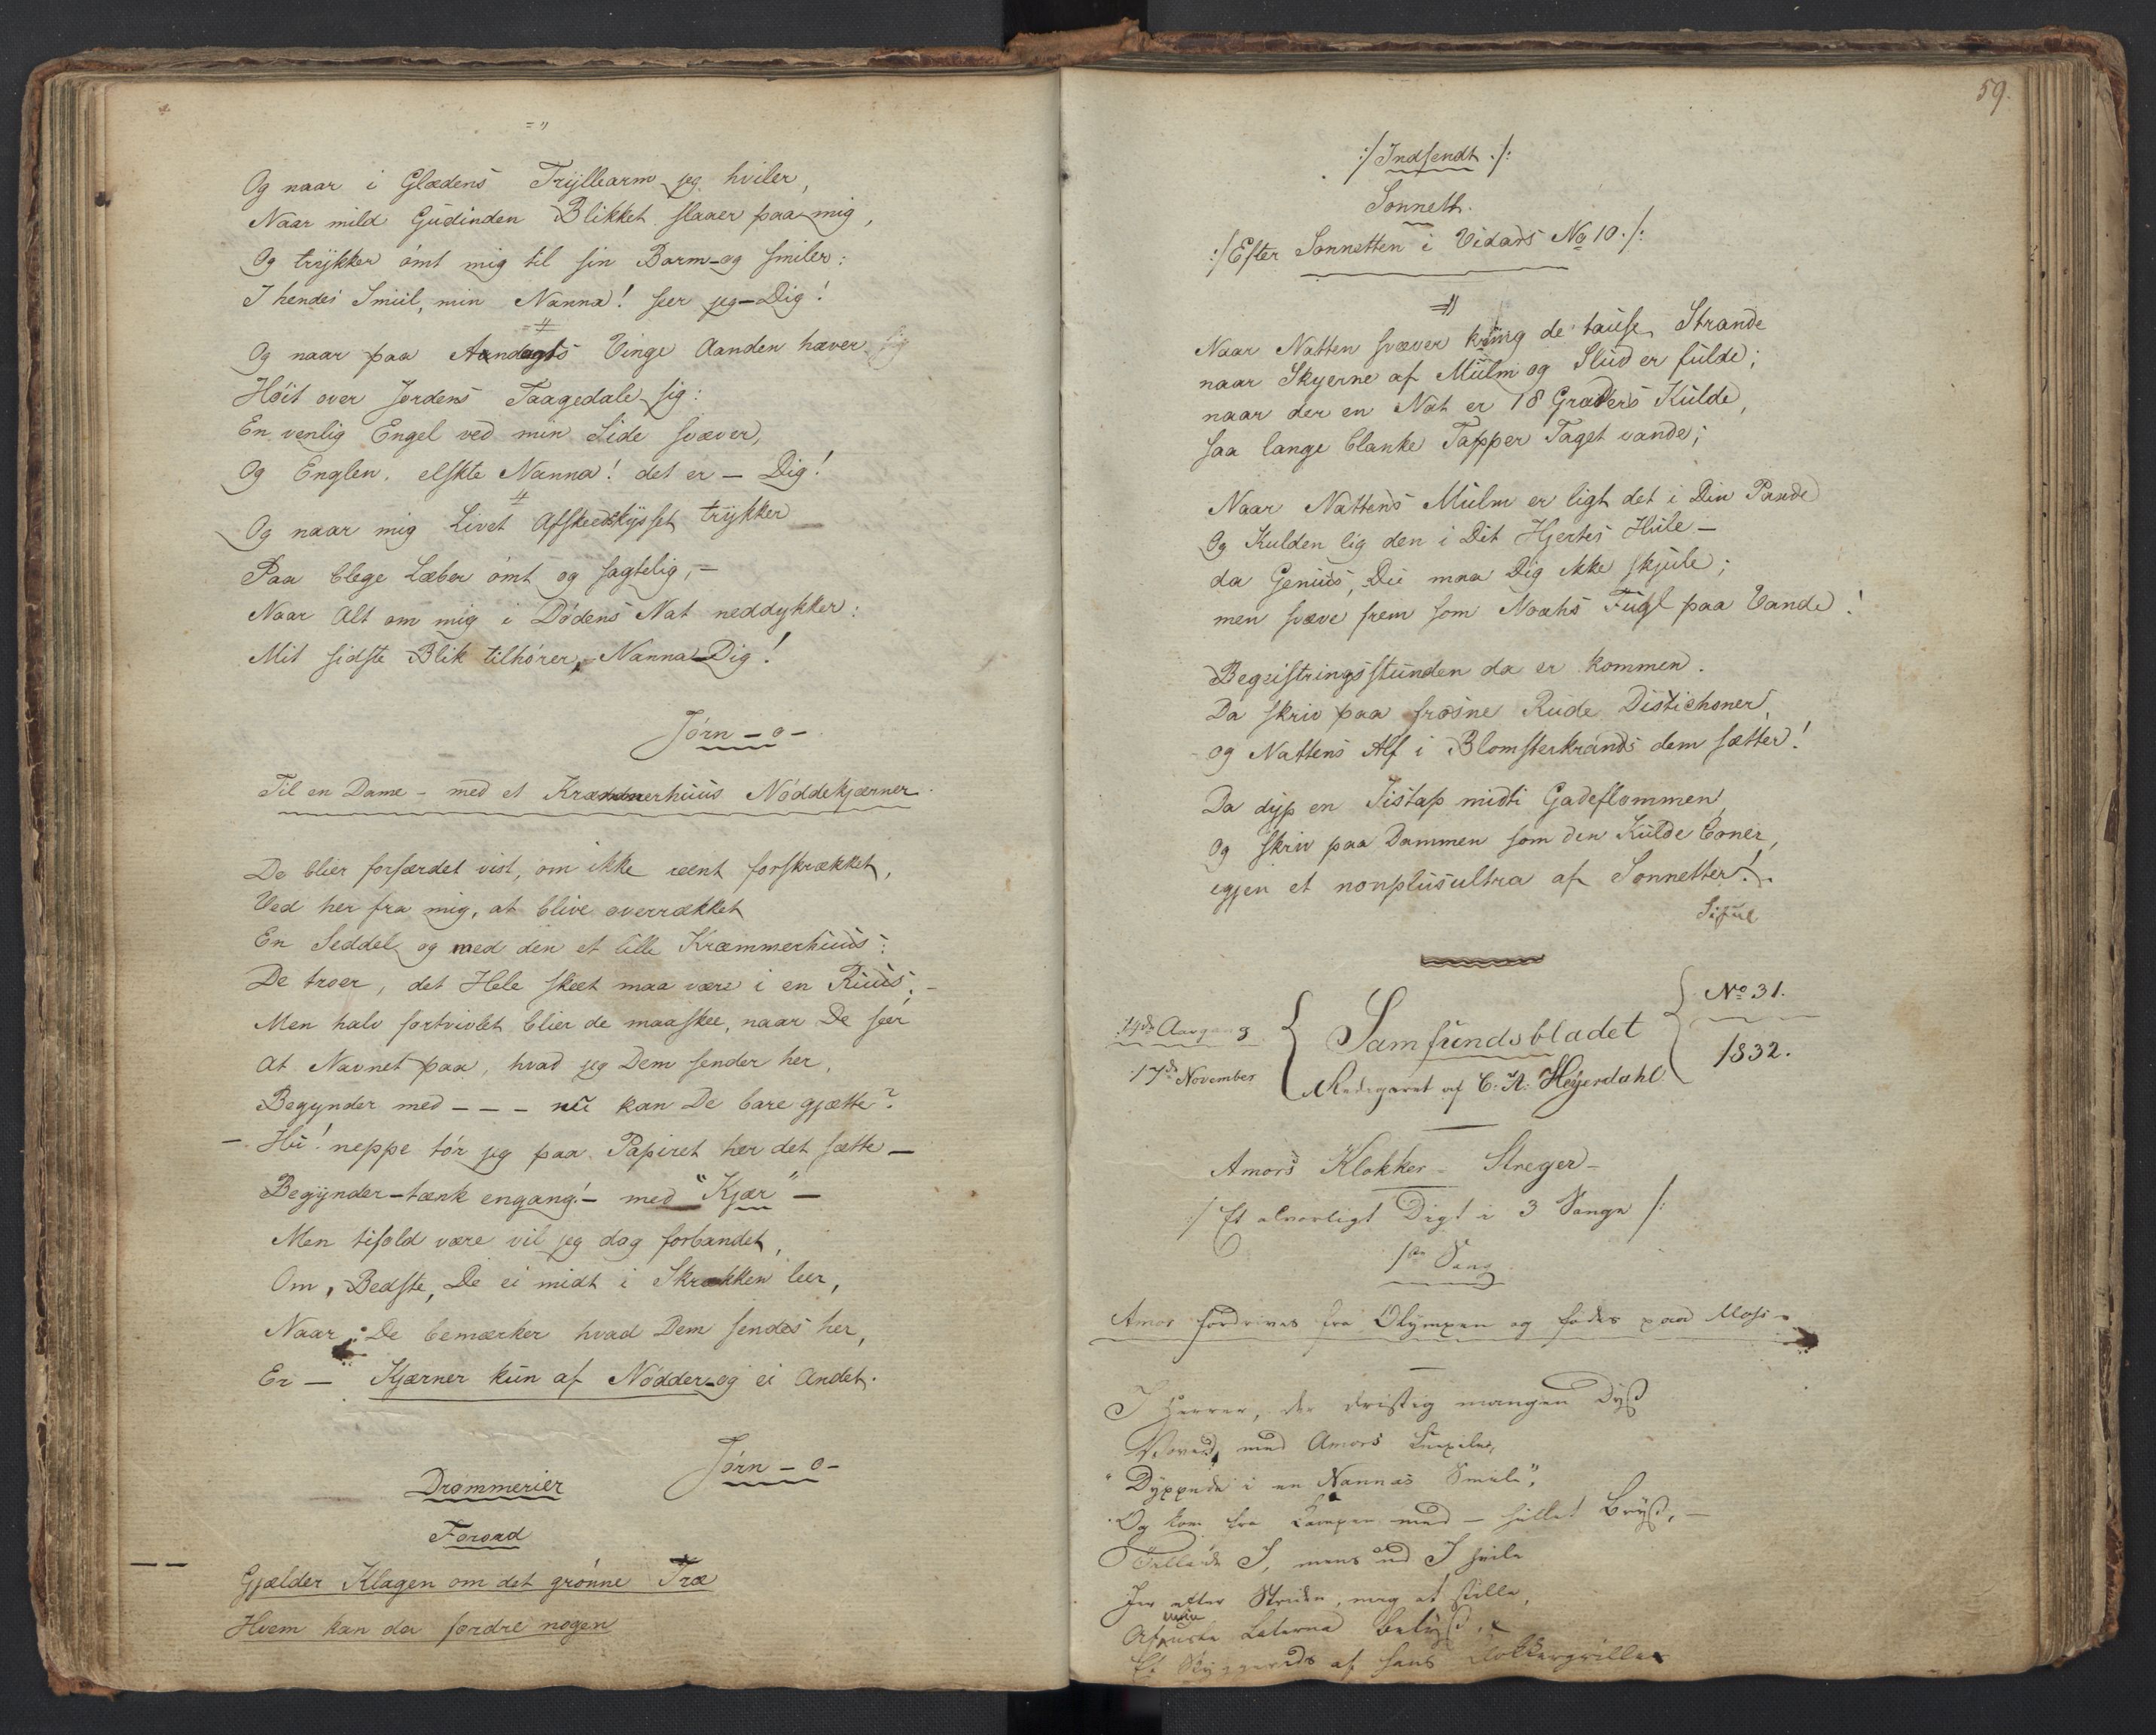 Og naar i Glædens Tryllearm jeg hviler,
Naar mild Gudinden Blikket slaaer paa mig,
Og trykker ömt mig til sin Barm og smiler:
I hendes Smiil, min Nanna! seer jeg – Dig!
Og naar paa Aandagts Vinge Aanden hæver
Höit over Jordens Taagedale sig:
En venlig Engel ved min Side svæver,
Og Englen, elskte Nanna! det er – Dig!
Og naar mig Livet Afskeedskysset trykker
Paa blege Læber ömt og sagtelig, –
Naar Alt om mig i Dödens Nat neddykker:
Mit sidste Blik tilhörer, Nanna – Dig!
Jörn – o –
Til en Dame – med et Kræmmerhuus Nöddekjærner.
De blier forfærdet vist, om ikke reent forskrækket,
Ved her fra mig, at blive overrækket
En Seddel og med den et lille Kræmmerhuus:
De troer, det Hele skeet maa være i en Ruus; –
Men halv fortvivlet blier de maaskee, naar De seer
At Navnet paa, hvad jeg Dem sender her,
Begynder med – – – nu kan De bare gjætte?
– Hu! neppe tör jeg paa Papiret her det sætte –
Begynder – tænk engang! – med "Kjær" –
Men tifold være vil jeg dog forbandet,
Om, Bedste, De ei midt i Skrækken leer,
Naar De bemærker hvad Dem sendes her,
Er – Kjærner kun af Nödder – og ei Andet.
Jörn – o –
Drømmerier
Forord
Gjælder Klagen om det grönne Træ
Hvem kan da fordre nogen
59.
:/ Indsendt ./:
Sonnett.
:/ Efter Sonnetten i Vidars No 10 ./:
Naar Natten svæver kring de tause Strande
naar Skyerne af Mulm og Slud er fulde;
naar der en Nat er 18 Graders Kulde,
saa lange blanke Tapper Taget vande;
Naar Nattens Mulm er ligt det i Din Pande
Og Kulden lig den i Dit Hjertes Hule –
da Genius, Du maa Dig ikke skjule;
men svæve frem som Noahs Fugl paa Vande!
Begeistringsstunden da er kommen.
Da skriv paa frosne Rude Distichoner,
og Nattens Alf i Blomsterkrands dem sætter!
Da dyp en Iistap midti Gadeflommen,
Og skriv paa Dammen som den Kulde Evner,
igjen et nonplusultra af Sonnetter!.
Siful
14de Aargang
17de November
Samfundsbladet
Redigeret af C. A. Heyerdahl
No 31.
1832.
Amors Klokker – Streger –
:/ Et alvorligt Digt i 3 Sange /:
1ste Sang
Amor fordrives fra Olympen og fødes paa Mosi –
I Herrer, der dristig mangen Dyst
Vovede med Amors
"Dyppede i en Nannas Smiil",
Og kom fra Kampen med – Bryst, –
Tillade I, mens nu I hvile
Jer efter Striden, mig at stille,
min Laterna belyst,
Et af hans Klokkergriller